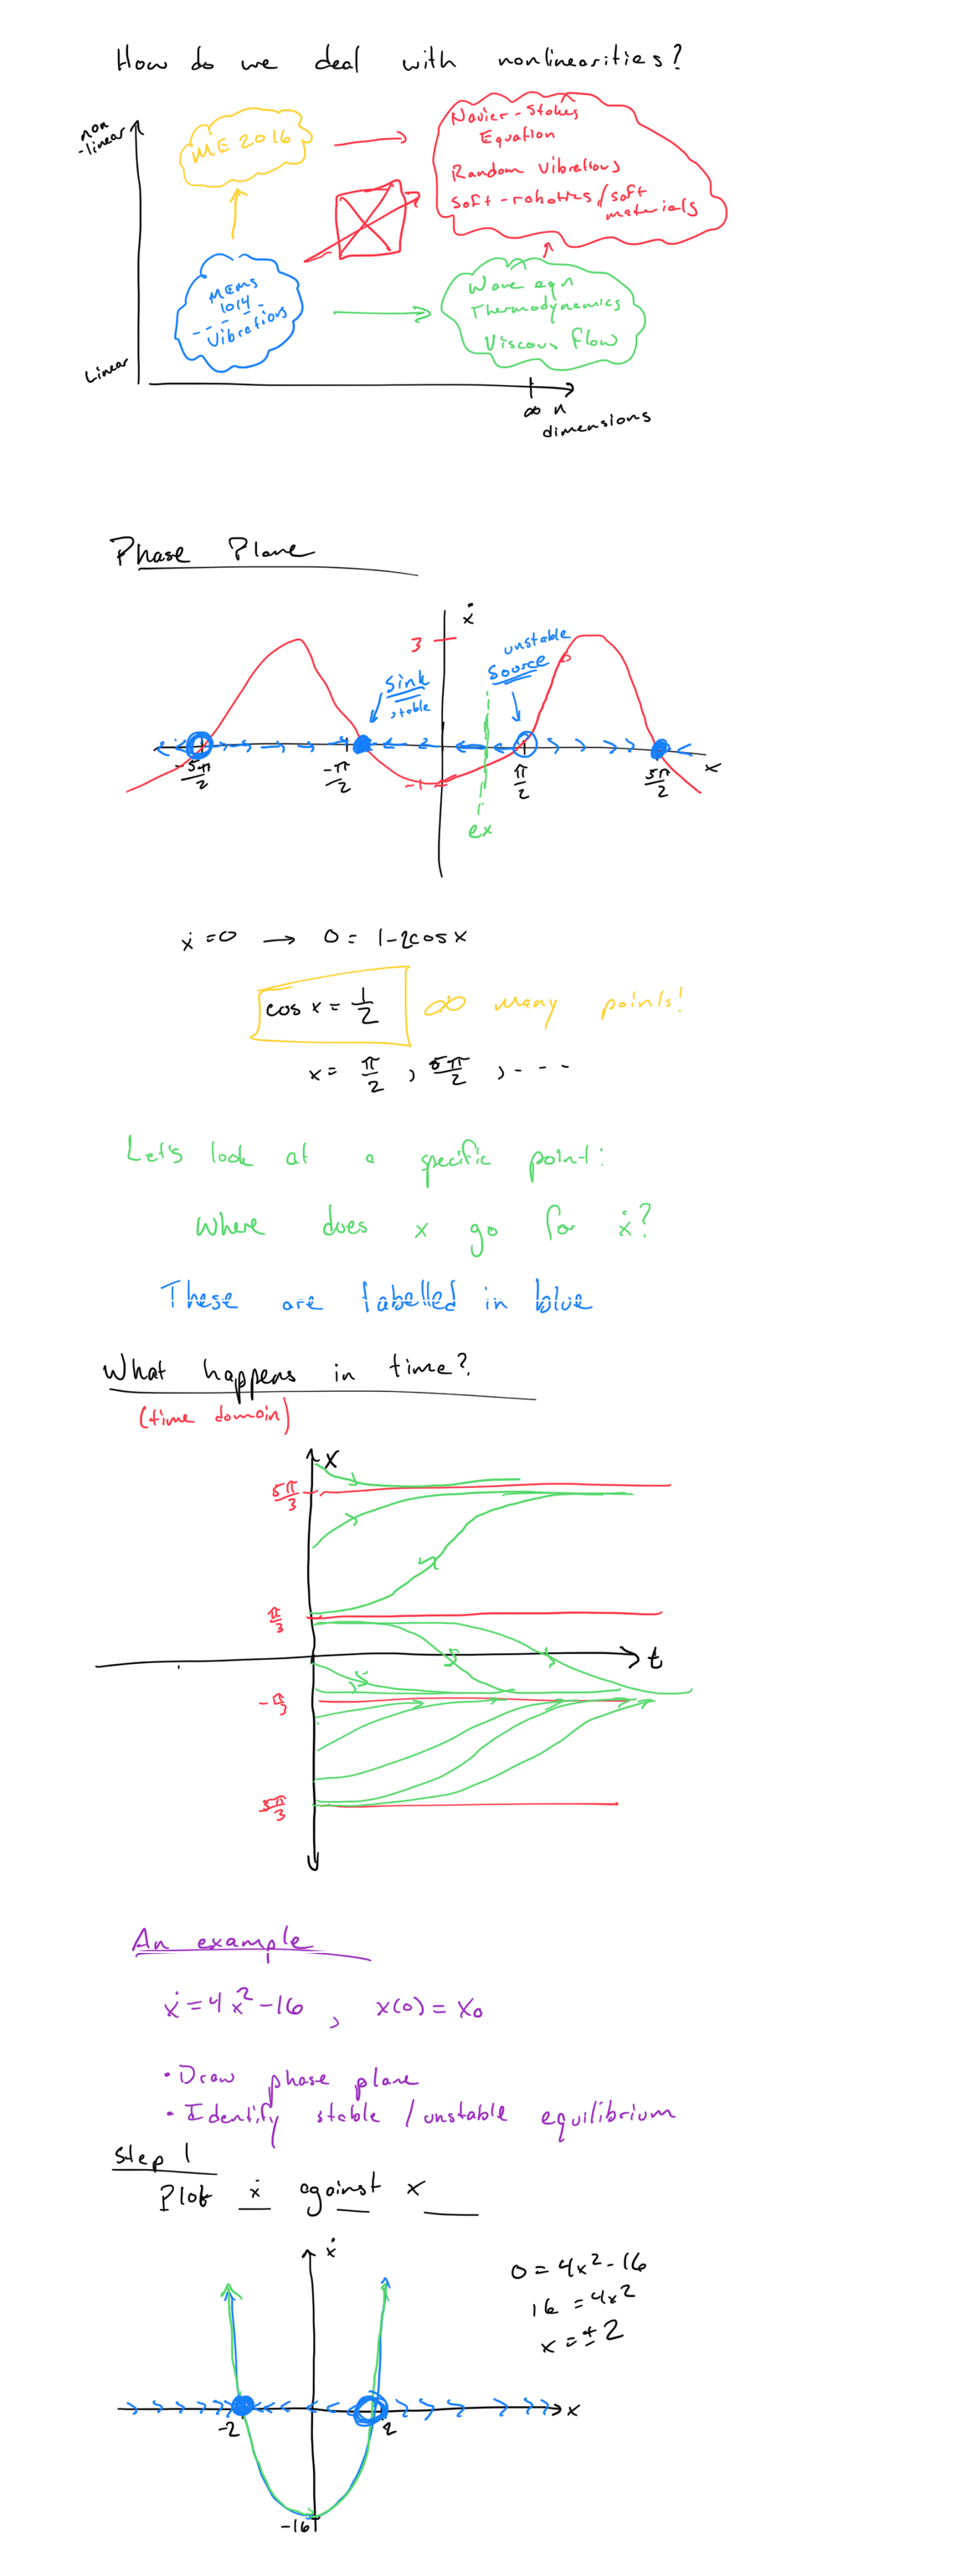 How do we deal with nonlinearities?
non
-linear
ME 2016
Navier-Stokes
Equation
Random Vibrations
Soft-robotics/soft
materials
MEMS
1014
Vibrations
Wave eqn
Thermodynamics
Viscous Flow
Linear
∞ n
dimensions
Phase Plane
ẋ
3
unstable
source
sink
stable
-5π/2
-π/2
-1
π/2
5π/2
x
ex
ẋ=0 → 0= 1-2cosx
cos x = 1/2
∞ many points!
x= π/2, 5π/2, ---
Let's look at a specific point:
Where does x go for ẋ?
These are labelled in blue
What happens in time?
(time domain)
x
5π/3
π/3
t
-π/3
5π/3
An example
ẋ=4x²-16, x(0)=x₀
• Draw phase plane
• Identify stable/unstable equilibrium
Step 1
Plot ẋ against x
ẋ
0=4x²-16
16=4x²
x=±2
-2
2
x
-16